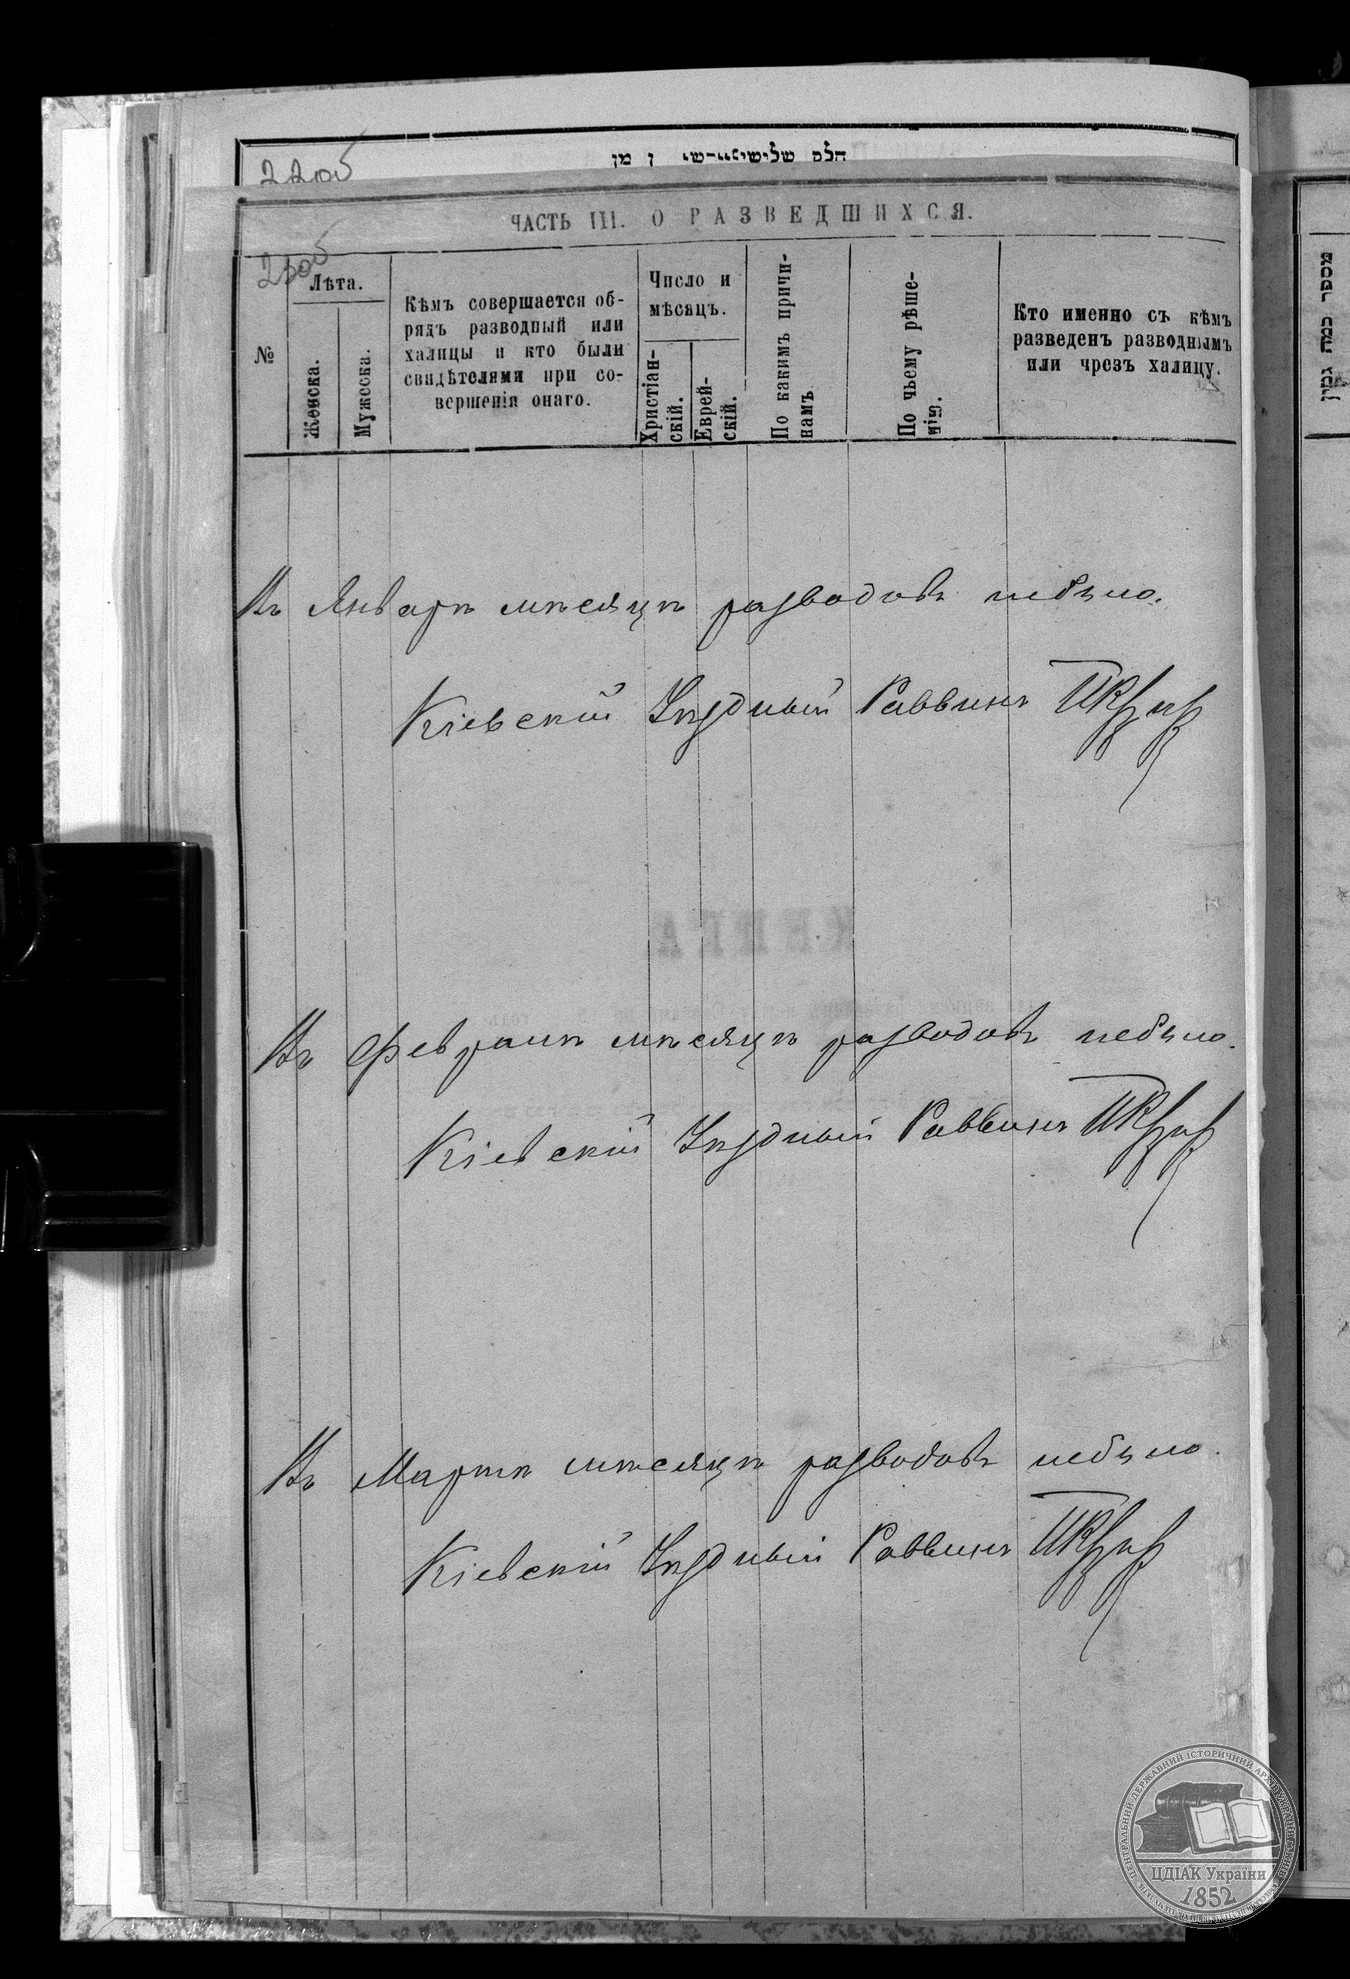 חלק שלישי
ЧАСТЬ III. О РАЗВЕДШИХСЯ.
№
Лѣта.
Женска.
Мужеска.
Кѣмъ совершается об-
рядъ разводный или
халицы и кто были
свидѣтелями при со-
вершенія онаго.
Число и
мѣсяцъ.
Христіан-
скій.
Еврей-
скій.
По какимъ причи-
намъ
По чьему рѣше-
нію.
Кто именно съ кѣмъ
разведенъ разводнымъ
или чрезъ халицу.
Въ Январѣ мѣсяцѣ разводовъ небыло.
Кіевскій Уѣздный Раввинъ
Въ Февралѣ мѣсяцѣ разводовъ небыло.
Кіевскій Уѣздный Раввинъ
Въ Мартѣ мѣсяцѣ разводовъ небыло.
Кіевскій Уѣздный Раввинъ
מספר כמה גטין
КНИГА
ЦДІАК України
1852